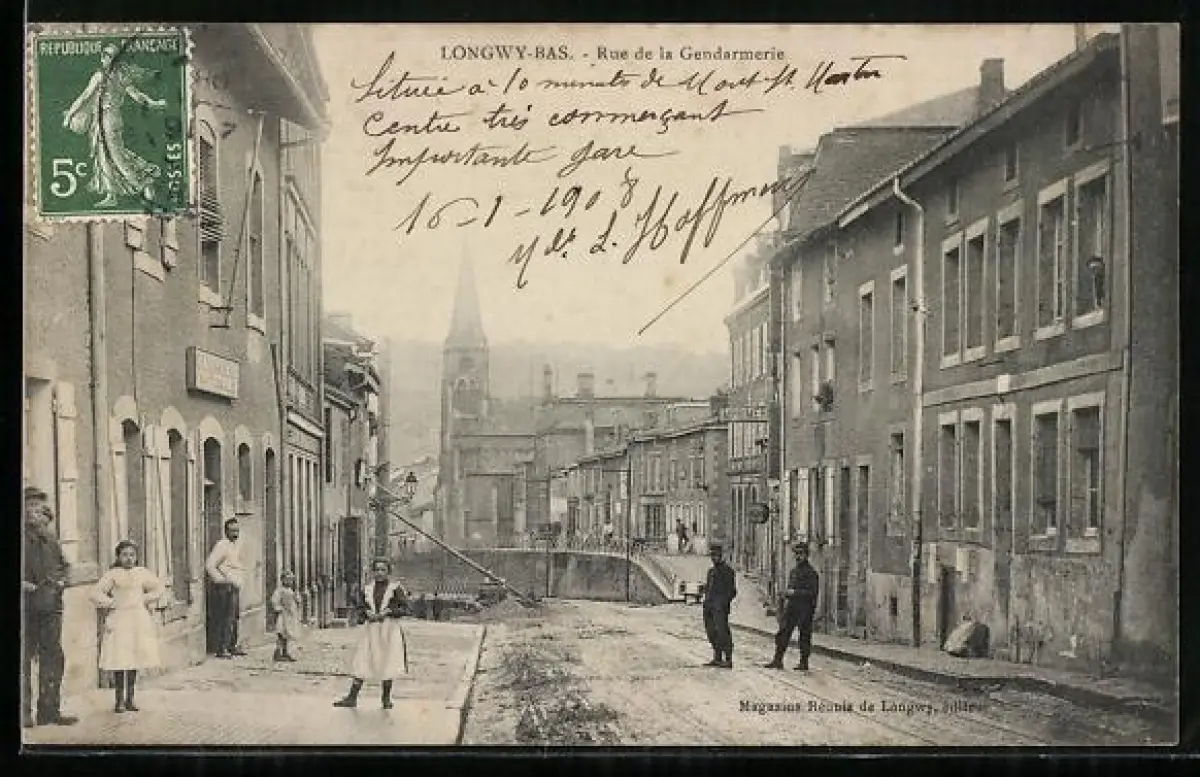 REPUBLIQUE FRANÇAISE
5c
POSTES
LONGWY-BAS. - Rue de la Gendarmerie
Située à 10 minuts de Mont St. Martin
Centre très commerçant
Importante gare
16-1-1908
L. Hoffmann
Magasins Réunis de Longwy, édit.